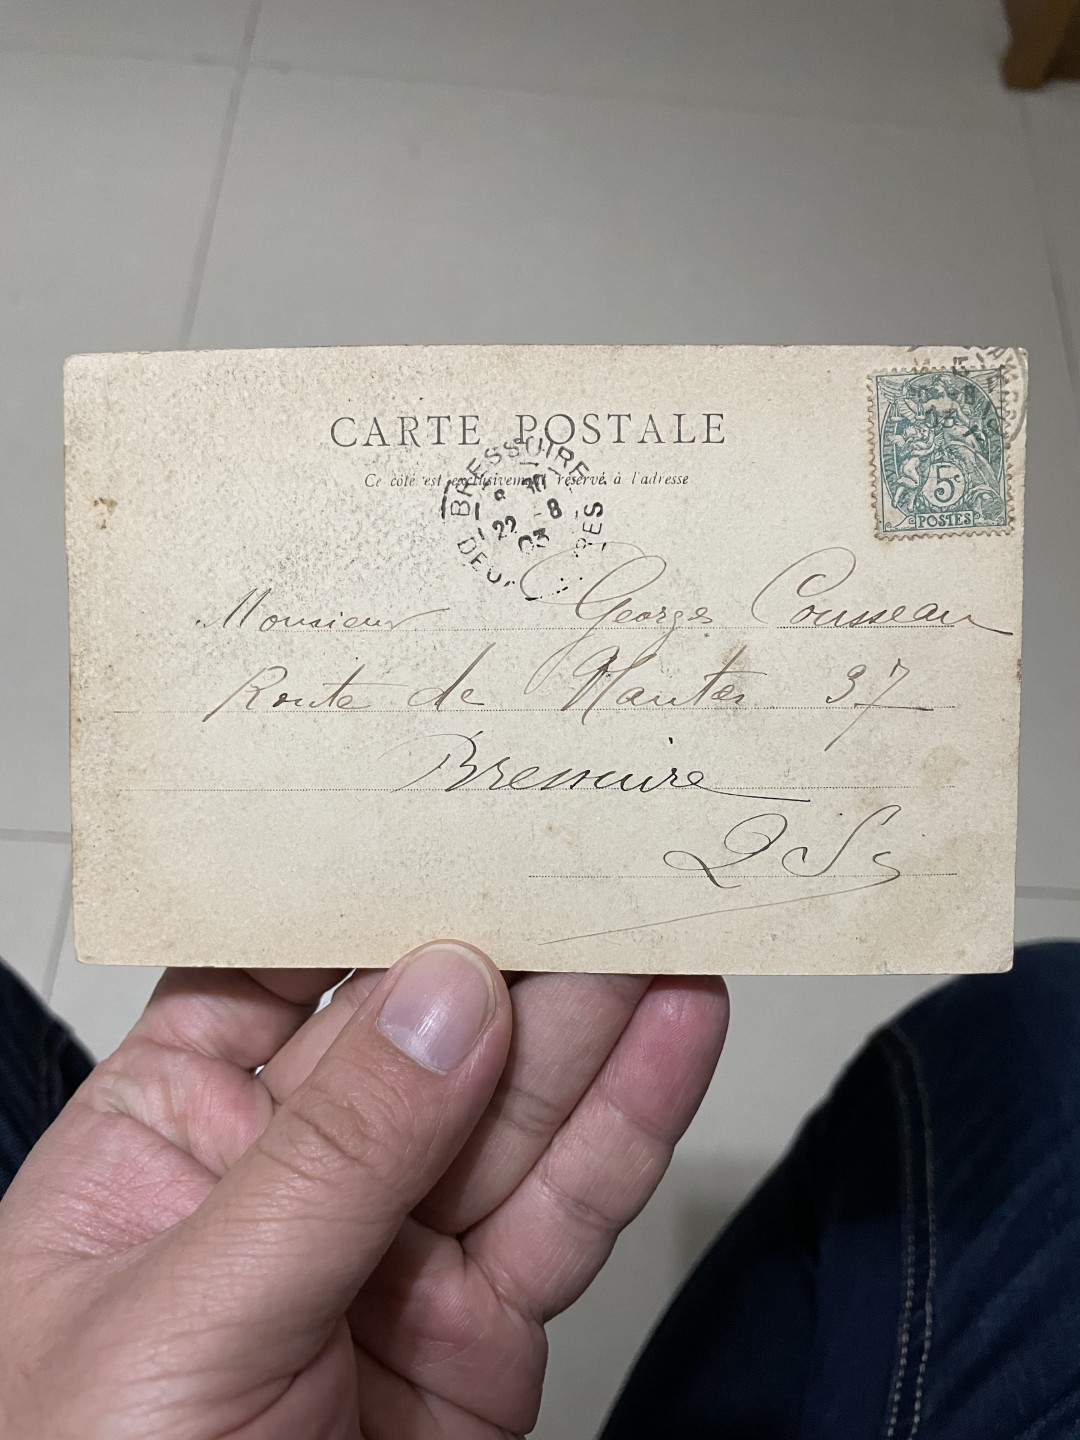 CARTE POSTALE
Ce côté est exclusivement réservé à l'adresse
BRESSUIRE
22 -8
03
5c
POSTES
Monsieur Georges Cousseau
Route de Nantes 37
Bressuire
2 Ss